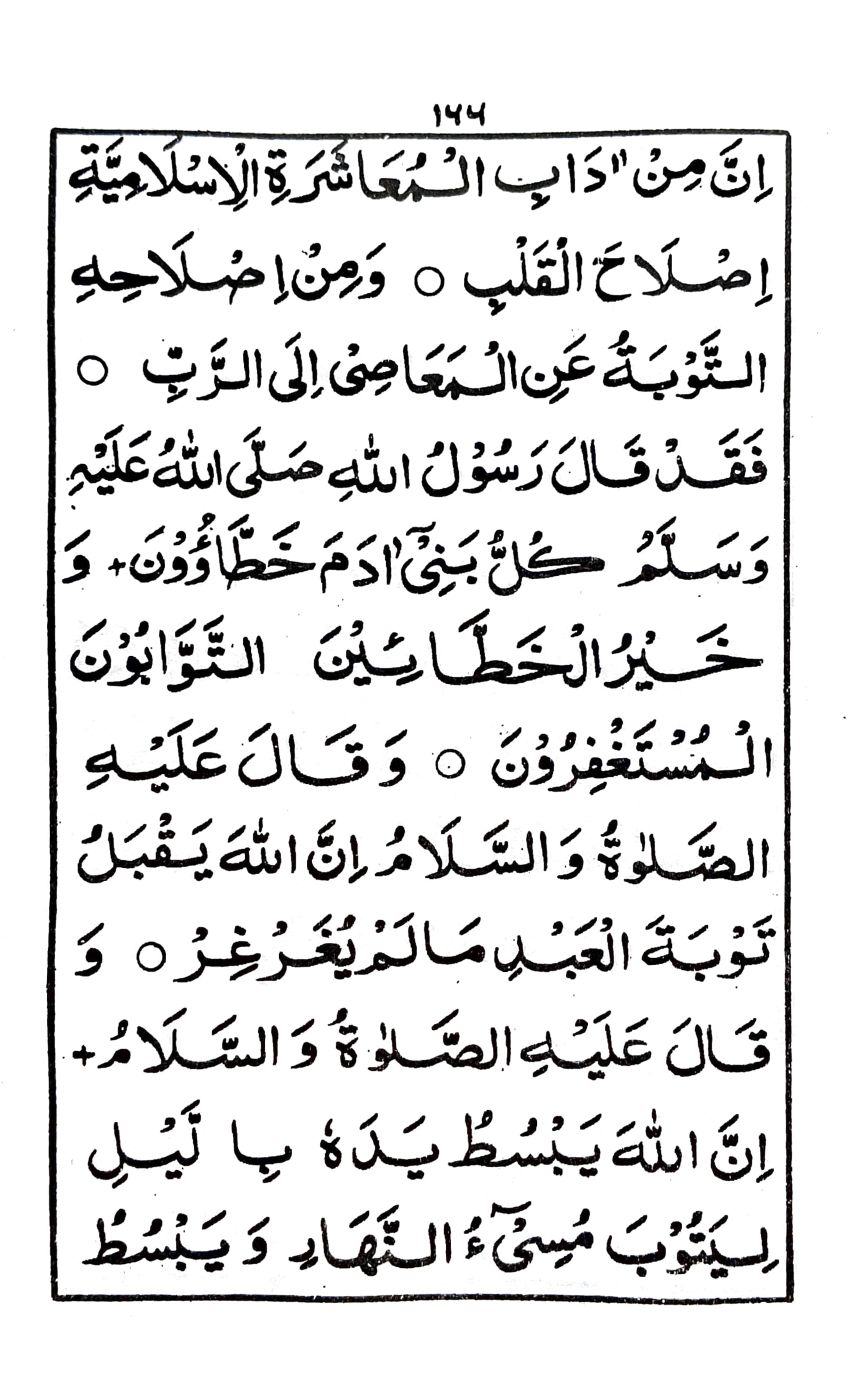 ١٦٦
اِنَّ مِنْ اٰدَابِ الْمُعَاشَرَةِ الْاِسْلَامِيَّةِ
اِصْلَاحَ الْقَلْبِ ○ وَمِنْ اِصْلَاحِهِ
التَّوْبَةُ عَنِ الْمَعَاصِىْ اِلَى الرَّبِّ ○
فَقَدْ قَالَ رَسُوْلُ اللهِ صَلَّى اللهُ عَلَيْهِ
وَسَلَّمَ كُلُّ بَنِىْٓ اٰدَمَ خَطَّاؤُوْنَ + وَ
خَيْرُ الْخَطَّائِيْنَ التَّوَّابُوْنَ
الْمُسْتَغْفِرُوْنَ ○ وَقَالَ عَلَيْهِ
الصَّلٰوةُ وَالسَّلَامُ اِنَّ اللهَ يَقْبَلُ
تَوْبَةَ الْعَبْدِ مَالَمْ يُغَرْغِرْ ○ وَ
قَالَ عَلَيْهِ الصَّلٰوةُ وَالسَّلَامُ +
اِنَّ اللهَ يَبْسُطُ يَدَهٗ بِا لَّيْلِ
لِيَتُوْبَ مُسِىْٓءُ النَّهَارِ وَيَبْسُطُ